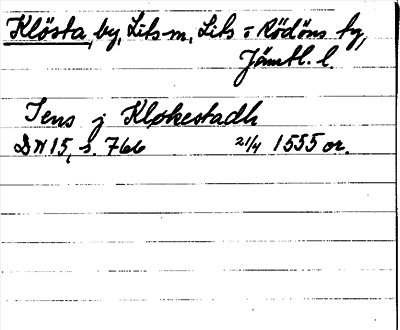 Klösta, by, Lits sn, Lits o Rödöns tg,
Jämtl. l.
Jens j Klokestadh
DN 15, s. 766 21/4 1555 or.